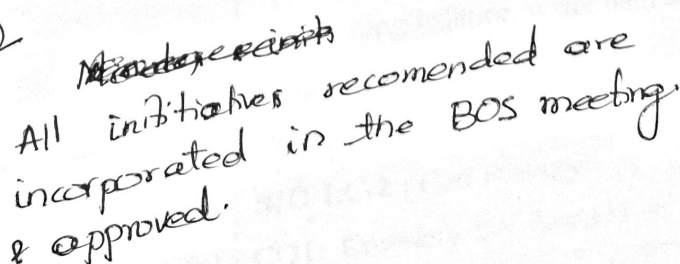 All inititiatives recomended are
incorporated in the BOS meeting.
& approved.